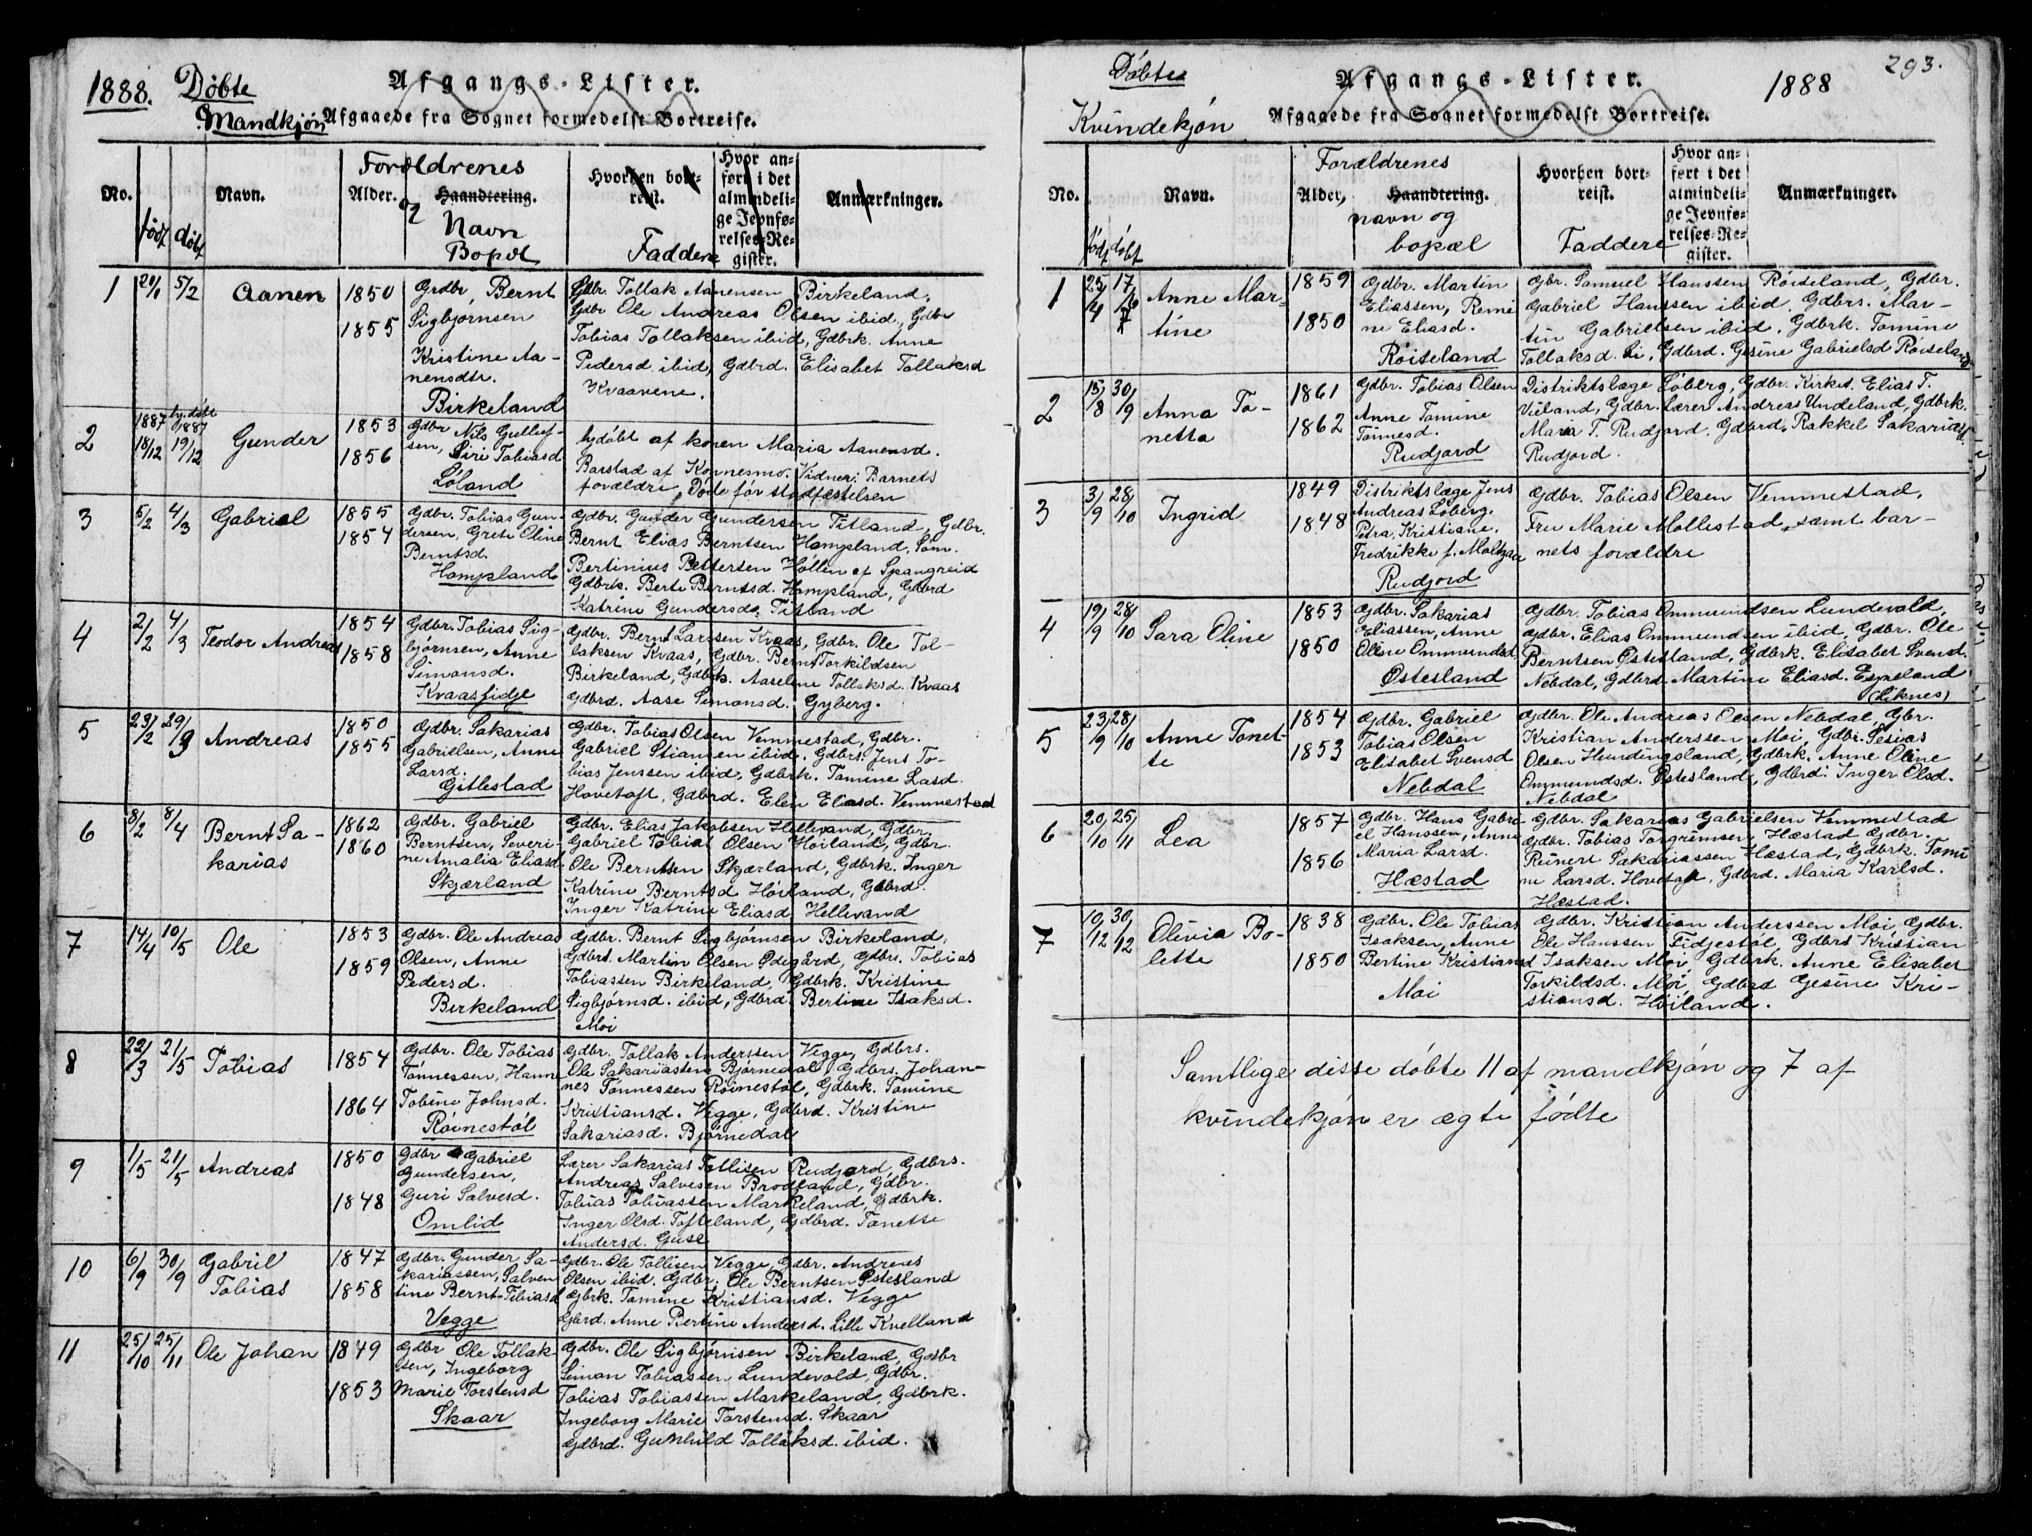 1888. Döbte
Mandkjön
Afgangs-Lister.
Afgaaede fra Sognet formedelst Bortreise.
No.
født döbt
Navn.
Forældrenes
Alder. og
Haandtering.
Navn
Bopæl
Hvorhen bort-
reist.
Faddere
Hvor an-
ført i det
almindeli-
ge Jevnfø-
relses-Re-
gister.
Anmærkninger.
1 20/1 5/2 Aanen 1850 1855
Grdbr. Bernt
Sigbjørnsen
Kristine Aa-
nensdtr.
Birkeland
Gdbr. Tollak Aanensen Birkeland,
Gdbr Ole Andreas Olsen ibid, Gdbr
Tobias Tollaksen ibid, Gdbrk. Anne
Pedersd. ibid, Gdbrd. Elisabet Tollaksd
Kvaavene.
2 1887 18/12 hj.døbt 1887 19/12 Gunder 1853 1856
Gdbr Nils Gulluf-
sen, Siri Tobiasd
Løland
hjdöbt af konen Maria Aanensd.
Barstad af Konnesmo. Vidner: Barnets
forældre, Döde før stadfæstelsen
3 5/2 4/3 Gabriel 1855 1854
Gdbr. Tobias Gun-
dersen, Grete Oline
Berntsd.
Hompland
Gdbr. Gunder Gundersen Titland, Gdbr.
Bernt Elias Berntsen Hompland, Søm.
Bertinius Pettersen Höllen af Spangreid
Gdbrk. Berte Berntsd. Hompland, Gdbrd
Katrine Gundersd. Titland
4 2/2 4/3 Teodor Andreas 1854 1858
Gdbr. Tobias Sig-
bjørnsen, Anne
Simonsd.
Kvaasfidje
Gdbr. Bernt Larssen Kvaas, Gdbr. Ole Tol-
laksen Kvaas, Gdbr. Bernt Torkildsen
Birkeland, Gdbrk. Aaselene Tollaksd. Kvaas
Gdbrd. Aase Simonsd. Gyberg.
5 23/2 29/3 Andreas 1850 1855
Gdbr. Sakarias
Gabrielsen, Anne
Larsd.
Gitlestad
Gdbr. Tobias Olsen Vemmestad, Gdbr.
Gabriel Stiansen ibid. Gdbrs. Jens To-
bias Jenssen ibid, Gdbrk. Tomine Lasd.
Hovetoft, Gdbrd. Elen Eliasd. Vemmestad
6 8/2 8/4 Bernt Sa-
karias 1862 1860
Gdbr. Gabriel
Berntsen, Severi-
ne Amalia Eliasd
Skjærland
Gdbr. Elias Jakobsen Hellevand, Gdbr.
Gabriel Tobias Olsen Höiland, Gdbr.
Ole Berntsen Skjærland, Gdbrk. Inger
Katrine Berntsd Höiland, Gdbrd.
Inger Katrine Eliasd. Hellevand
7 14/4 10/5 Ole 1853 1859
Gdbr. Ole Andreas
Olsen, Anne
Pedersd.
Birkeland
Gdbr. Bernt Sigbjørnsen Birkeland,
Gdbrs. Martin Olsen Ødegård, Gdbr. Tobias
Tobiassen Birkeland, Gdbrk. Kristine
Sigbjørnsd. ibid, Gdbrd. Bertine Isaksd.
Moi
8 22/3 21/5 Tobias 1854 1864
Gdbr. Ole Tobias
Tønnessen, Hanne
Tobine Johnsd.
Röinestöl
Gdbr. Tollak Anderssen Vegge, Gdbrs.
Ole Sakariassen Bjørnedal, Gdbrs. Johan-
nes Tønnessen Röinestøl, Gdbrk. Tomine
Kristiansd. Vegge, Gdbrd. Kristine
Sakariasd. Bjørnedal
9 1/5 21/5 Andreas 1850 1848
Gdbr Gabriel
Gundersen,
Guri Salvesd.
Omlid
Lærer Sakarias Tollisen Rudjord, Gdbrs.
Andreas Salvesen Brodland, Gdbr.
Tobias Tobiassen Markeland, Gdbrk.
Inger Olsd. Tofteland, Gdbrd. Tonette
Andersd. Guse
10 6/9 30/9 Gabril
Tobias 1847 1858
Gdbr. Gunder Sa-
kariassen, Salven
tine Bernt-Tobiasd
Vegge
Gdbr. Ole Tollisen Vegge, Gdbr. Andreas
Olsen ibid. Gdbr. Ole Berntsen Østesland
Gbrk. Tomine Kristiansd. Vegge
Gbrd. Anne Bertine Andersd. Lille Kvelland
11 25/10 25/11 Ole Johan 1849 1853
Gdbr Ole Tollak-
sen, Ingeborg
Marie Torstensd
Skaar
Gdbr. Ole Sigbjørnsen Birkeland, Gdbr
Simon Tobiassen Lundevold, Gdbr.
Tobias Tobiassen Markeland, Gdbrk.
Ingeborg Marie Torstensd. Skaar
Gdbrd. Gunhild Tollaksd. ibid.
Döbte
Kvindekjön
Afgangs-Lister.
Afgaaede fra Sognet formedelst Bortreise.
1888
293.
No.
født döbt
Navn.
Forældrenes
Alder,
Haandtering.
navn og
bopæl
Hvorhen bort-
reist.
Faddere
Hvor an-
ført i det
almindeli-
ge Jevnfø-
relses-Re-
gister.
Anmærkninger.
1 25/4 17/6 Anne Mar-
tine 1859 1850
Gdbr. Martin
Eliassen, Remi
ne Eliasd.
Röiseland
Gbr. Samuel Hanssen Röiseland, Gdbr.
Gabriel Hanssen ibid. Gdbrs. Mar-
tin Gabrielsen ibid. Gdbrk. Tomine
Tollaksd. Li, Gdbrd. Gesine Gabrielsd Röiseland
2 15/8 30/9 Anna To-
netta 1861 1862
Gdbr. Tobias Olsen
Anne Tomine
Tönnesd.
Rudjord
Distriktslæge Löberg, Gdbr. Kirkes. Elias T.
Vieland, Gdbr. Lærer Andreas Undeland, Gdbrk.
Maria T. Rudjord. Gdbrd. Rakkel Sakariasd.
Rudjord.
3 3/9 28/10 Ingrid 1849 1848
Distriktslæge Jens
Andreas Löberg.
Petra Kristiane.
Fredrikke f. Moltzau
Rudjord
Gdbr. Tobias Olsen Vemmestad,
Fru Marie Mollestad, samt bar-
nets forældre
4 19/9 28/10 Sara Oline 1853 1850
Gdbr. Sakarias
Eliassen, Anne
Oline Ommundsd
Østesland
Gdbr. Tobias Ommundsen Lundevold,
Gdbr. Elias Ommundsen ibid, Gdbr. Ole
Berntsen Østesland, Gdbrk. Elisabet Svensd.
Nebdal, Gdbrd. Martine Eliasd. Espeland
(Liknes)
5 23/9 28/10 Anne Tonet-
te 1854 1853
Gdbr. Gabriel
Tobias Olsen
Elisabet Svensd
Nebdal
Gdbr. Ole Andreas Olsen Nebdal, Gbr.
Kristian Anderssen Moi, Gdbr. Jesias
Olsen Hundingsland, Gdbrk. Anne Oline
Ommundsd. Østesland, Gdbrd. Inger Olsd.
Nebdal
6 20/10 25/11 Lea 1857 1856
Gdbr. Hans Gabri-
el Hanssen, Anne
Maria Larsd.
Hæstad
Gdbr. Sakarias Gabrielsen Vemmestad
Gdbr. Tobias Torgrimsen Hæstad Gdbr.
Reinert Sakariassen Hæstad, Gdbrk. Tomi
ne Larsd. Hovetoft, Gdbrd. Maria Karlsd.
Hæstad.
7 10/12 30/12 Olivia Bo-
lette 1838 1850
Gdbr. Ole Tobias
Isaksen, Anne
Bertine Kristiansd
Moi
Gdbr. Kristian Anderssen Moi, Gdbr.
Ole Hanssen Fidjestøl, Gdbrs Kristian
Isaksen Moi, Gdbrk. Anne Elisabet
Torkildsd. Moi, Gdbrd Gesine Kri-
stiansd. Höiland.
Samtlige disse döbte 11 af mandkjön og 7 af
kvindekjön er ægte fødte